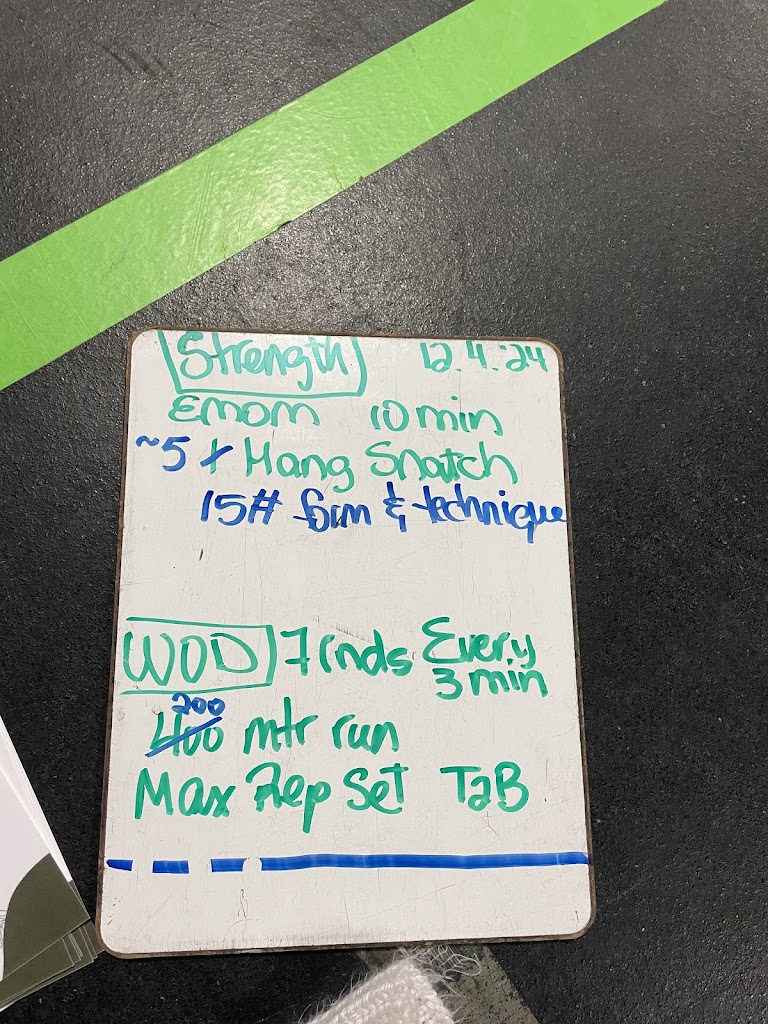 Strength 12.4.'24
EMOM 10 min
~5 x Hang Snatch
15# form & technique
WOD 7 rnds Every
3 min
200
400 mtr run
Max Rep Set T2B